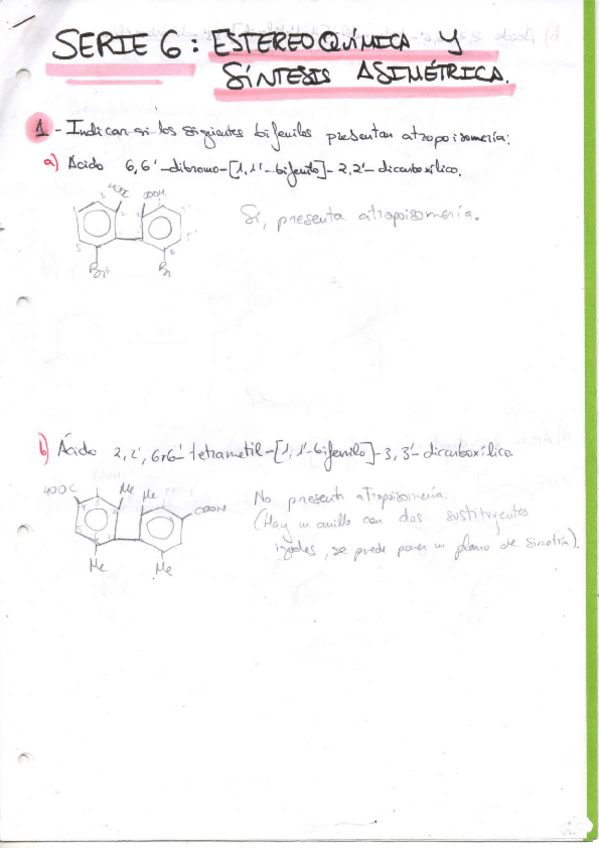 SERIE 6: ESTEREOQUÍMICA Y
SÍNTESIS ASIMÉTRICA.
1 - Indican si los siguientes bifenilos presentan atropoisomería:
a) Ácido 6,6'-dibromo-[1,1'-bifenilo]-2,2'-dicarboxílico.
HOOC COOH
Sí, presenta atropoisomería.
Br Br
b) Ácido 2,2',6,6'-tetrametil-[1,1'-bifenilo]-3,3'-dicarboxílico
HOOC Me Me COOH
No presenta atropoisomería.
(Hay un anillo con dos sustituyentes
iguales, se puede poner un plano de simetría).
Me Me